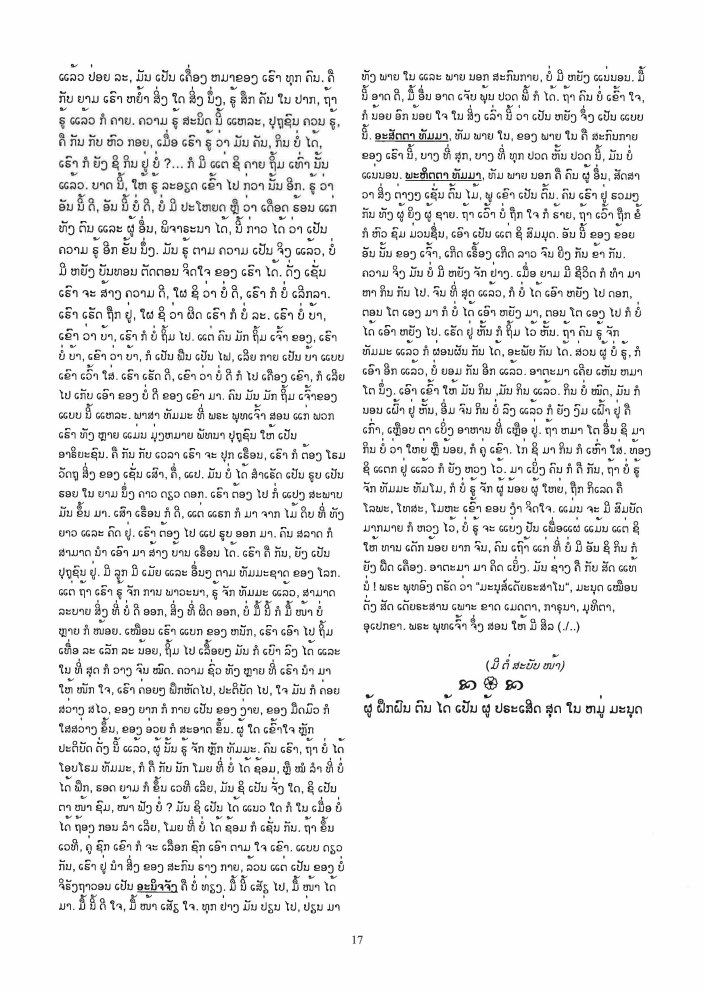 ແລ້ວ ປ່ອຍ ລະ, ມັນ ເປັນ ເຄື່ອງ ຫມາຂອງ ເຮົາ ທຸກ ຄົນ. ຄື
ກັບ ຍາມ ເຮົາ ຫຍ້ຳ ສິ່ງ ໃດ ສິ່ງ ນຶ່ງ, ຮູ້ ສຶກ ຄັນ ໃນ ປາກ, ຖ້າ
ຮູ້ ແລ້ວ ກໍ ຄາຍ. ຄວາມ ຮູ້ ສະນິດ ນີ້ ແຫລະ, ປຸຖຸຊົນ ຄວນ ຮູ້,
ຄື ກັນ ກັບ ຫົວ ກອຍ, ເມື່ອ ເຮົາ ຮູ້ ວ່າ ມັນ ຄັນ, ກິນ ບໍ່ ໄດ້,
ເຮົາ ກໍ ຍັງ ຊິ ກິນ ຢູ່ ບໍ່ ?... ກໍ ມີ ແຕ່ ຊິ ຄາຍ ຖິ້ມ ເທົ່າ ນັ້ນ
ແລ້ວ. ບາດ ນີ້, ໃຫ້ ຮູ້ ລະອຽດ ເຂົ້າ ໄປ ກວ່າ ນັ້ນ ອີກ. ຮູ້ ວ່າ
ອັນ ນີ້ ດີ, ອັນ ນີ້ ບໍ່ ດີ, ບໍ່ ມີ ປະໂຫຍດ ຫຼື ວ່າ ເດືອດ ຮ້ອນ ແກ່
ທັງ ຕົນ ແລະ ຜູ້ ອື່ນ, ພິຈາຣະນາ ໄດ້, ນີ້ ກ່າວ ໄດ້ ວ່າ ເປັນ
ຄວາມ ຮູ້ ອີກ ຂັ້ນ ນຶ່ງ. ມັນ ຮູ້ ຕາມ ຄວາມ ເປັນ ຈິງ ແລ້ວ, ບໍ່
ມີ ຫຍັງ ບັ່ນທອນ ຕັດຕອນ ຈິດໃຈ ຂອງ ເຮົາ ໄດ້. ດັ່ງ ເຊັ່ນ
ເຮົາ ຈະ ສ້າງ ຄວາມ ດີ, ໃຜ ຊິ ວ່າ ບໍ່ ດີ, ເຮົາ ກໍ ບໍ່ ເລີກລາ.
ເຮົາ ເຮັດ ຖືກ ຢູ່, ໃຜ ຊິ ວ່າ ຜິດ ເຮົາ ກໍ ບໍ່ ລະ. ເຮົາ ບໍ່ ບ້າ,
ເຂົາ ວ່າ ບ້າ, ເຮົາ ກໍ ບໍ່ ຖິ້ມ ໄປ. ແຕ່ ຄົນ ມັກ ຖິ້ມ ເຈົ້າ ຂອງ, ເຮົາ
ບໍ່ ບ້າ, ເຂົາ ວ່າ ບ້າ, ກໍ ເປັນ ຟືນ ເປັນ ໄຟ, ເລີຍ ກາຍ ເປັນ ບ້າ ແບບ
ເຂົາ ເວົ້າ ໃສ່. ເຮົາ ເຮັດ ດີ, ເຂົາ ວ່າ ບໍ່ ດີ ກໍ ໄປ ເຄືອງ ເຂົາ, ກໍ ເລີຍ
ໄປ ເກັບ ເອົາ ຂອງ ບໍ່ ດີ ຂອງ ເຂົາ ມາ. ຄົນ ມັນ ມັກ ຖິ້ມ ເຈົ້າຂອງ
ແບບ ນີ້ ແຫລະ. ພາສາ ທັມມະ ທີ່ ພຣະ ພຸທເຈົ້າ ສອນ ແກ່ ພວກ
ເຮົາ ທັງ ຫຼາຍ ແມ່ນ ມຸ່ງຫມາຍ ພັທນາ ປຸຖຸຊົນ ໃຫ້ ເປັນ
ອາຣິຍະຊົນ. ຄື ກັນ ກັບ ເວລາ ເຮົາ ຈະ ປຸກ ເຮືອນ, ເຮົາ ກໍ ຕ້ອງ ໂຮມ
ວັດຖຸ ສິ່ງ ຂອງ ເຊັ່ນ ເສົາ, ຄື່, ແປ. ມັນ ບໍ່ ໄດ້ ສຳເຣັດ ເປັນ ຮູບ ເປັນ
ຮອຍ ໃນ ຍາມ ນຶ່ງ ຄາວ ດຽວ ດອກ. ເຮົາ ຕ້ອງ ໄປ ກໍ່ ແປງ ສະພາບ
ມັນ ຂຶ້ນ ມາ. ເສົາ ເຮືອນ ກໍ ດີ, ແຕ່ ແຮກ ກໍ ມາ ຈາກ ໄມ້ ດິບ ທີ່ ທັງ
ຍາວ ແລະ ຄົດ ຢູ່. ເຮົາ ຕ້ອງ ໄປ ແປ ຮູບ ອອກ ມາ. ຄົນ ສລາດ ກໍ
ສາມາດ ນຳ ເອົາ ມາ ສ້າງ ບ້ານ ເຮືອນ ໄດ້. ເຮົາ ຄື ກັນ, ຍັງ ເປັນ
ປຸຖຸຊົນ ຢູ່. ມີ ລູກ ມີ ເມັຍ ແລະ ອື່ນໆ ຕາມ ທັມມະຊາດ ຂອງ ໂລກ.
ແຕ່ ຖ້າ ເຮົາ ຮູ້ ຈັກ ການ ພາວະນາ, ຮູ້ ຈັກ ທັມມະ ແລ້ວ, ສາມາດ
ລະບາຍ ສິ່ງ ທີ່ ບໍ່ ດີ ອອກ, ສິ່ງ ທີ່ ຜິດ ອອກ, ບໍ່ ມື້ ນີ້ ກໍ ມື້ ໜ້າ ບໍ່
ຫຼາຍ ກໍ ໜ້ອຍ. ເໝືອນ ເຮົາ ແບກ ຂອງ ຫນັກ, ເຮົາ ເອົາ ໄປ ຖິ້ມ
ເທື່ອ ລະ ເລັກ ລະ ນ້ອຍ, ຖິ້ມ ໄປ ເລື້ອຍໆ ມັນ ກໍ ເບົາ ລົງ ໄດ້ ແລະ
ໃນ ທີ່ ສຸດ ກໍ ວາງ ຈົນ ໝົດ. ຄວາມ ຊົ່ວ ທັງ ຫຼາຍ ທີ່ ເຮົາ ນຳ ມາ
ໃຫ້ ໜັກ ໃຈ, ເຮົາ ຄ່ອຍໆ ຝຶກຫັດໄປ, ປະຕິບັດ ໄປ, ໃຈ ມັນ ກໍ ຄ່ອຍ
ສວ່າງ ສໄວ, ຂອງ ຍາກ ກໍ ກາຍ ເປັນ ຂອງ ງ່າຍ, ຂອງ ມືດມົວ ກໍ
ໃສສວ່າງ ຂຶ້ນ, ຂອງ ອ່ວຍ ກໍ ສະອາດ ຂຶ້ນ. ຜູ້ ໃດ ເຂົ້າໃຈ ຫຼັກ
ປະຕິບັດ ດັ່ງ ນີ້ ແລ້ວ, ຜູ້ ນັ້ນ ຮູ້ ຈັກ ຫຼັກ ທັມມະ. ຄົນ ເຮົາ, ຖ້າ ບໍ່ ໄດ້
ໂອບໂຮມ ທັມມະ, ກໍ ຄື ກັບ ນັກ ໂມຍ ທີ່ ບໍ່ ໄດ້ ຊ້ອມ, ຫຼື ໝໍ ລຳ ທີ່ ບໍ່
ໄດ້ ຟຶກ, ຮອດ ຍາມ ກໍ ຂຶ້ນ ເວທີ ເລີຍ, ມັນ ຊິ ເປັນ ຈັ່ງ ໃດ, ຊິ ເປັນ
ຕາ ໜ້າ ຊົມ, ໜ້າ ຟັງ ບໍ່ ? ມັນ ຊິ ເປັນ ໄດ້ ແນວ ໃດ ກໍ ໃນ ເມື່ອ ບໍ່
ໄດ້ ຖ້ອງ ກອນ ລຳ ເລີຍ, ໂມຍ ທີ່ ບໍ່ ໄດ້ ຊ້ອມ ກໍ ເຊັ່ນ ກັນ. ຖ້າ ຂຶ້ນ
ເວທີ, ຄູ່ ຊົກ ເຂົາ ກໍ ຈະ ເລືອກ ຊົກ ເອົາ ຕາມ ໃຈ ເຂົາ. ແບບ ດຽວ
ກັນ, ເຮົາ ຢູ່ ນຳ ສິ່ງ ຂອງ ສະກົນ ຮ່າງ ກາຍ, ລ້ວນ ແຕ່ ເປັນ ຂອງ ບໍ່
ຈິຣັງຖາວອນ ເປັນ ອະນິຈຈັງ ຄື ບໍ່ ທ່ຽງ. ມື້ ນີ້ ເສັຽ ໄປ, ມື້ ໜ້າ ໄດ້
ມາ. ມື້ ນີ້ ດີ ໃຈ, ມື້ ໜ້າ ເສັຽ ໃຈ. ທຸກ ຢ່າງ ມັນ ປ່ຽນ ໄປ, ປ່ຽນ ມາ
ທັງ ພາຍ ໃນ ແລະ ພາຍ ນອກ ສະກົນກາຍ, ບໍ່ ມີ ຫຍັງ ແນ່ນອນ. ມື້
ນີ້ ອາດ ດີ, ມື້ ອື່ນ ອາດ ເຈັບ ພຸ້ນ ປວດ ພີ້ ກໍ ໄດ້. ຖ້າ ຄົນ ບໍ່ ເຂົ້າ ໃຈ,
ກໍ ນ້ອຍ ອົກ ນ້ອຍ ໃຈ ໃນ ສິ່ງ ເລົ່າ ນີ້ ວ່າ ເປັນ ຫຍັງ ຈຶ່ງ ເປັນ ແບບ
ນີ້. ອະສັຕຕາ ທັມມາ, ທັມ ພາຍ ໃນ, ຂອງ ພາຍ ໃນ ຄື ສະກົນກາຍ
ຂອງ ເຮົາ ນີ້, ບາງ ທີ່ ສຸກ, ບາງ ທີ່ ທຸກ ປວດ ຫັ້ນ ປວດ ນີ້, ມັນ ບໍ່
ແນ່ນອນ. ພະຫິຕຕາ ທັມມາ, ທັມ ພາຍ ນອກ ຄື ຄົນ ຜູ້ ອື່ນ, ສັດສາ
ວາ ສິ່ງ ຕ່າງໆ ເຊັ່ນ ຕົ້ນ ໄມ້, ພູ ເຂົາ ເປັນ ຕົ້ນ. ຄົນ ເຮົາ ຢູ່ ຮວມໆ
ກັນ ທັງ ຜູ້ ຍິງ ຜູ້ ຊາຍ. ຖ້າ ເວົ້າ ບໍ່ ຖືກ ໃຈ ກໍ ຮ້າຍ, ຖ້າ ເວົ້າ ຖືກ ຂໍ້
ກໍ ຫົວ ຊົມ ມ່ວນຊື່ນ, ເອົາ ເປັນ ແຕ່ ຊິ ສົມມຸດ. ອັນ ນີ້ ຂອງ ຂ້ອຍ
ອັນ ນັ້ນ ຂອງ ເຈົ້າ, ເກີດ ເຣື້ອງ ເກີດ ລາວ ຈົນ ຍິງ ກັນ ຂ້າ ກັນ.
ຄວາມ ຈິງ ມັນ ບໍ່ ມີ ຫຍັງ ຈັກ ຢ່າງ. ເມື່ອ ຍາມ ມີ ຊີວິດ ກໍ ທຳ ມາ
ຫາ ກິນ ກັນ ໄປ. ຈົນ ທີ່ ສຸດ ແລ້ວ, ກໍ ບໍ່ ໄດ້ ເອົາ ຫຍັງ ໄປ ດອກ,
ຕອນ ໂຕ ເອງ ມາ ກໍ ບໍ່ ໄດ້ ເອົາ ຫຍັງ ມາ, ຕອນ ໂຕ ເອງ ໄປ ກໍ ບໍ່
ໄດ້ ເອົາ ຫຍັງ ໄປ. ເຮັດ ຢູ່ ຫັ້ນ ກໍ ຖິ້ມ ໄວ້ ຫັ້ນ. ຖ້າ ຄົນ ຮູ້ ຈັກ
ທັມມະ ແລ້ວ ກໍ ຜ່ອນຜັນ ກັນ ໄດ້, ອະພັຍ ກັນ ໄດ້. ສ່ວນ ຜູ້ ບໍ່ ຮູ້, ກໍ
ເອົາ ອີກ ແລ້ວ, ບໍ່ ຍອມ ກັນ ອີກ ແລ້ວ. ອາຕະມາ ເຄີຍ ເຫັນ ຫມາ
ໂຕ ນຶ່ງ. ເອົາ ເຂົ້າ ໃຫ້ ມັນ ກິນ ,ມັນ ກິນ ແລ້ວ. ກິນ ບໍ່ ໝົດ, ມັນ ກໍ
ນອນ ເຝົ້າ ຢູ່ ຫັ້ນ, ອີ່ມ ຈົນ ກິນ ບໍ່ ລົງ ແລ້ວ ກໍ ຍັງ ງົມ ເຝົ້າ ຢູ່ ຄື
ເກົ່າ, ເຫຼືອບ ຕາ ເບິ່ງ ອາຫານ ທີ່ ເຫຼືອ ຢູ່. ຖ້າ ຫມາ ໂຕ ອື່ນ ຊິ ມາ
ກິນ ບໍ່ ວ່າ ໃຫຍ່ ຫຼື ນ້ອຍ, ກໍ ຄູ່ ເຂົາ. ໄກ່ ຊິ ມາ ກິນ ກໍ ເຫົ່າ ໃສ່. ທ້ອງ
ຊິ ແຕກ ຢູ່ ແລ້ວ ກໍ ຍັງ ຫວງ ໄວ້. ມາ ເບິ່ງ ຄົນ ກໍ ຄື ກັນ, ຖ້າ ບໍ່ ຮູ້
ຈັກ ທັມມະ ທັມໂມ, ກໍ ບໍ່ ຮູ້ ຈັກ ຜູ້ ນ້ອຍ ຜູ້ ໃຫຍ່, ຖືກ ກິເລດ ຄື
ໂລພະ, ໂທສະ, ໂມຫະ ເຂົ້າ ຄອບ ງຳ ຈິດໃຈ. ແມ່ນ ຈະ ມີ ສົມບັດ
ມາກມາຍ ກໍ ຫວງ ໄວ້, ບໍ່ ຮູ້ ຈະ ແບ່ງ ປັນ ເພື່ອແຜ່ ແມ້ນ ແຕ່ ຊິ
ໃຫ້ ທານ ເດັກ ນ້ອຍ ຍາກ ຈົນ, ຄົນ ເຖົ້າ ແກ່ ທີ່ ບໍ່ ມີ ອັນ ຊິ ກິນ ກໍ
ຍັງ ຝືດ ເຄືອງ. ອາຕະມາ ມາ ຄິດ ເບິ່ງ. ມັນ ຊ່າງ ຄື ກັບ ສັດ ແທ້
ນໍ ! ພຣະ ພຸທອົງ ຕຣັດ ວ່າ "ມະນຸສ໌ເດັຍຣະສາໂນ", ມະນຸດ ເໝືອນ
ດັ່ງ ສັດ ເດັຍຣະສານ ເພາະ ຂາດ ເມດຕາ, ກາຣຸນາ, ມຸທິຕາ,
ອຸເປກຂາ. ພຣະ ພຸທເຈົ້າ ຈຶ່ງ ສອນ ໃຫ້ ມີ ສິລ (./..)
(ມີ ຕໍ່ ສະບັບ ໜ້າ)
ຜູ້ ຝຶກຝົນ ຕົນ ໄດ້ ເປັນ ຜູ້ ປຣະເສີດ ສຸດ ໃນ ຫມູ່ ມະນຸດ
17